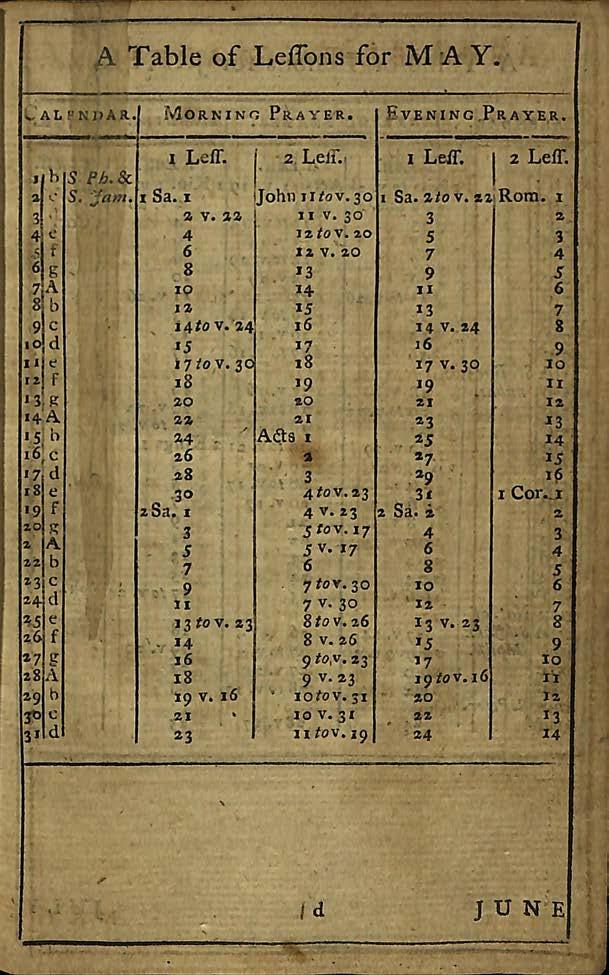 A Table of Leſſons for MAY.
CALENDAR. MORNING PRAYER. EVENING PRAYER.
1 Leſſ. 2 Leſſ. 1 Leſſ. 2 Leſſ.
1 b S. Ph. &
2 c S. Jam. 1 Sa. 1 John 11 to v. 30 1 Sa. 2 to v. 22 Rom. 1
3 2 v. 22 11 v. 30 3 2
4 e 4 12 to v. 20 5 3
5 f 6 12 v. 20 7 4
6 g 8 13 9 5
7 A 10 14 11 6
8 b 12 15 13 7
9 c 14 to v. 24 16 14 v. 24 8
10 d 15 17 16 9
11 e 17 to v. 30 18 17 v. 30 10
12 f 18 19 19 11
13 g 20 20 21 12
14 A 22 21 23 13
15 b 24 Acts 1 25 14
16 c 26 2 27 15
17 d 28 3 29 16
18 e 30 4 to v. 23 31 1 Cor. 1
19 f 2 Sa. 1 4 v. 23 2 Sa. 2 2
20 g 3 5 to v. 17 4 3
2 A 5 5 v. 17 6 4
22 b 7 6 8 5
23 c 9 7 to v. 30 10 6
24 d 11 7 v. 30 12 7
25 e 13 to v. 23 8 to v. 26 13 v. 23 8
26 f 14 8 v. 26 15 9
27 g 16 9 to v. 23 17 10
28 A 18 9 v. 23 19 to v. 16 11
29 b 19 v. 16 10 to v. 31 20 12
30 c 21 10 v. 31 22 13
31 d 23 11 to v. 19 24 14
d JUNE